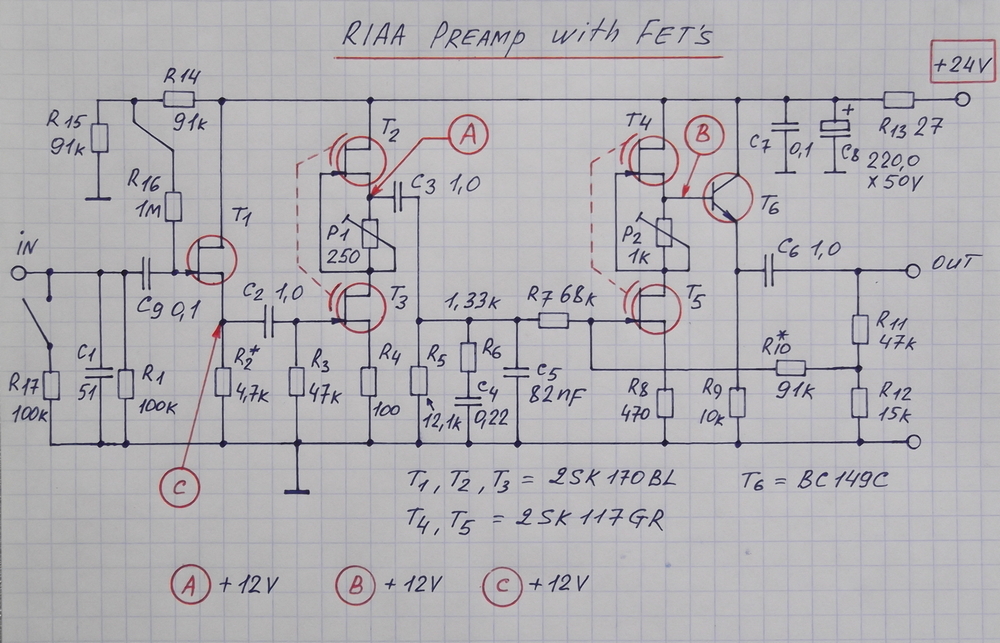 RIAA PREAMP with FET's
+24V
R14
91k
R15
91k
R16
1M
T1
T2
A
C3 1,0
P1
250
T3
T4
B
P2
1k
T5
T6
C7
0,1
+
C8
220,0
x 50V
R13 27
iN
C9 0,1
C2 1,0
C
R17
100k
C1
51
R1
100k
R2*
4,7k
R3
47k
R4
100
R5
12,1k
1,33k
R6
C4
0,22
C5
82nF
R7 68k
R8
470
R9
10k
C6 1,0
OUT
R10*
91k
R11
47k
R12
15k
T1, T2, T3 = 2SK170BL
T6 = BC149C
T4, T5 = 2SK117GR
A +12V B +12V C +12V